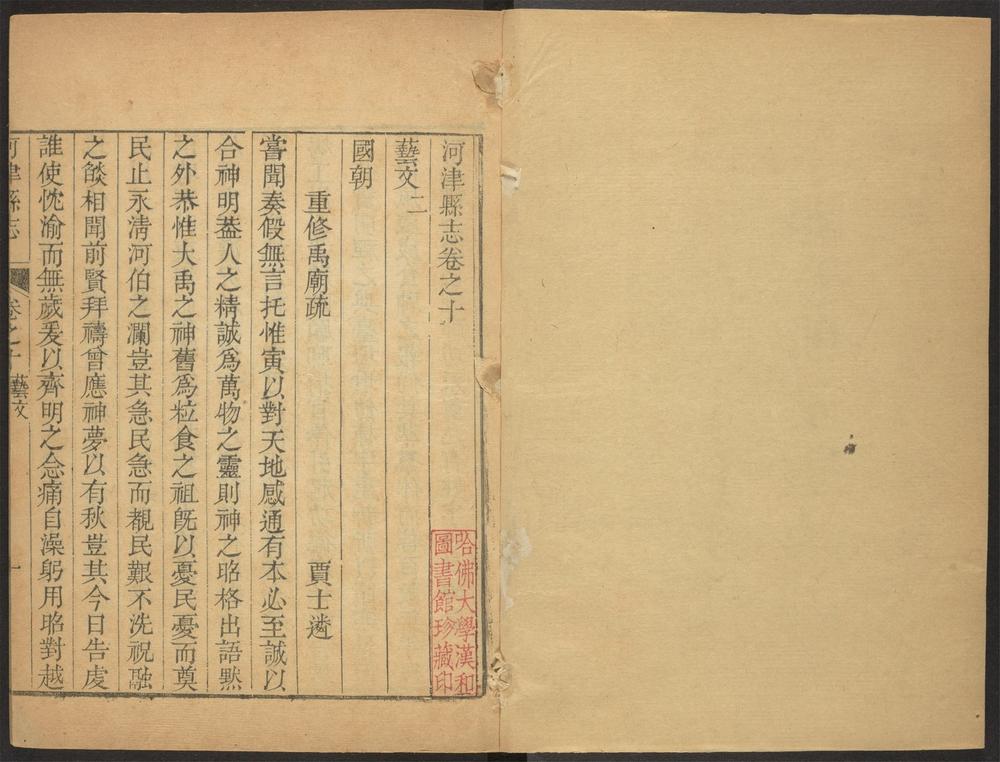 河津縣志卷之十
哈佛大學漢和
圖書館珍藏印
藝文二
國朝
重修禹廟疏 賈士遴
嘗聞奏假無言托惟寅以對天地感通有本必至誠以
合神明葢人之精誠為萬物之靈則神之昭格出語默
之外恭惟大禹之神舊為粒食之祖旣以憂民憂而奠
民止永淸河伯之瀾豈其急民急而覩民艱不洗祝融
之燄相聞前賢拜禱曾應神夢以有秋豈其今日告虔
誰使忱渝而無歲爰以齊明之念痛自澡躬用昭對越
河津縣志 卷之十 藝文 一